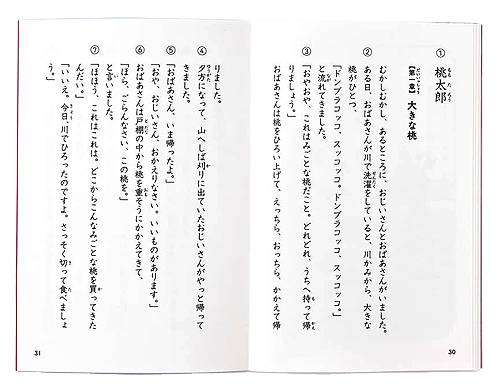 ① 桃太郎
【第一章】 大きな桃
むかしむかし、あるところに、おじいさんとおばあさんがいました。
② ある日、おばあさんが川で洗濯をしていると、川かみから、大きな
桃がひとつ、
「ドンブラコッコ、スッコッコ。ドンブラコッコ、スッコッコ。」
と流れてきました。
③ 「おやおや、これはみごとな桃だこと。どれどれ、うちへ持って帰
りましょう。」
おばあさんは桃をひろい上げて、えっちら、おっちら、かかえて帰
30
りました。
④ 夕方になって、山へしば刈りに出ていたおじいさんがやっと帰って
きました。
⑤ 「おばあさん、いま帰ったよ。」
「おや、おじいさん、おかえりなさい。いいものがあります。」
⑥ おばあさんは戸棚の中から桃を重そうにかかえてきて、
「ほら、ごらんなさい、この桃を。」
と言いました。
⑦ 「ほほう、これはこれは。どこからこんなみごとな桃を買ってきた
んだい。」
「いいえ。今日、川でひろったのですよ。さっそく切って食べましょ
う。」
31